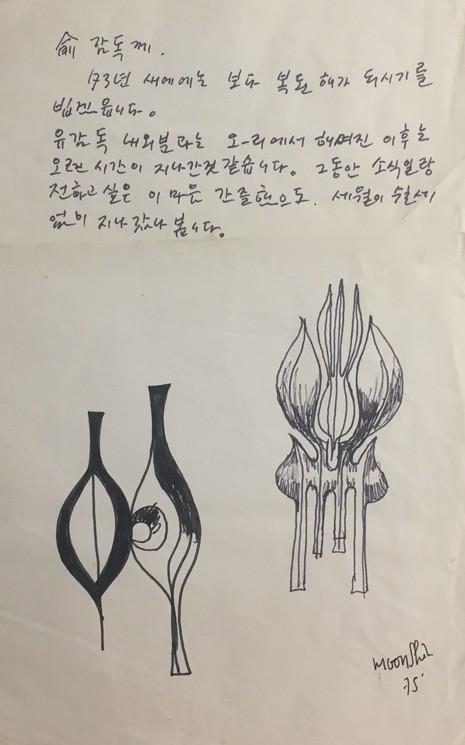 俞 감독께.
73년 새해에는 보다 복된 해가 되시기를
빕겠읍니다.
유감독 내외분과는 오-리에서 헤여진 이후는
오랜 시간이 지나간것 같습니다. 그동안 소식일랑
전하고 싶은 이 마음 간절했으도. 세월이
없이 지나 갔나 봅니다.
moonshin
75'